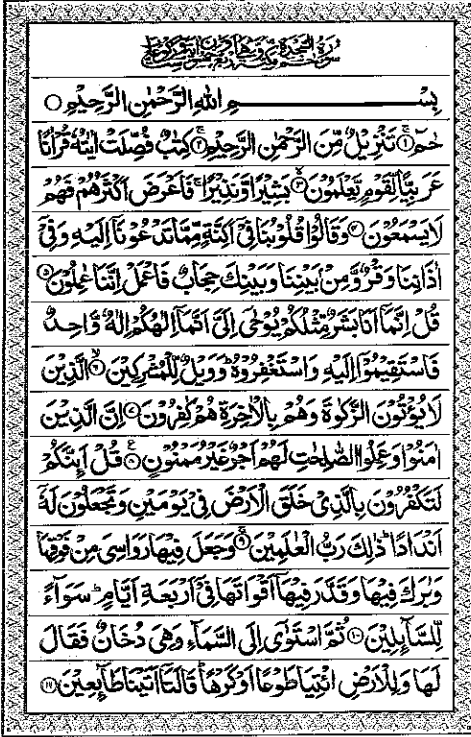 بِسْمِ اللهِ الرَّحْمٰنِ الرَّحِيْمِ ○
حٰمٓ ۚ﴿۱﴾ تَنْزِيْلٌ مِّنَ الرَّحْمٰنِ الرَّحِيْمِ ۚ﴿۲﴾ كِتٰبٌ فُصِّلَتْ اٰيٰتُهٗ قُرْاٰنًا
عَرَبِيًّا لِّقَوْمٍ يَّعْلَمُوْنَ ۙ﴿۳﴾ بَشِيْرًا وَّنَذِيْرًا ۚ فَاَعْرَضَ اَكْثَرُهُمْ فَهُمْ
لَا يَسْمَعُوْنَ ﴿۴﴾ وَقَالُوْا قُلُوْبُنَا فِيْٓ اَكِنَّةٍ مِّمَّا تَدْعُوْنَآ اِلَيْهِ وَفِيْٓ
اٰذَانِنَا وَقْرٌ وَّمِنْۢ بَيْنِنَا وَبَيْنِكَ حِجَابٌ فَاعْمَلْ اِنَّنَا عٰمِلُوْنَ ﴿۵﴾
قُلْ اِنَّمَآ اَنَا بَشَرٌ مِّثْلُكُمْ يُوْحٰٓى اِلَيَّ اَنَّمَآ اِلٰهُكُمْ اِلٰهٌ وَّاحِدٌ
فَاسْتَقِيْمُوْٓا اِلَيْهِ وَاسْتَغْفِرُوْهُ ؕ وَوَيْلٌ لِّلْمُشْرِكِيْنَ ۙ﴿۶﴾ الَّذِيْنَ
لَا يُؤْتُوْنَ الزَّكٰوةَ وَهُمْ بِالْاٰخِرَةِ هُمْ كٰفِرُوْنَ ﴿۷﴾ اِنَّ الَّذِيْنَ
اٰمَنُوْا وَعَمِلُوا الصّٰلِحٰتِ لَهُمْ اَجْرٌ غَيْرُ مَمْنُوْنٍ ۠﴿۸﴾ قُلْ اَىِٕنَّكُمْ
لَتَكْفُرُوْنَ بِالَّذِيْ خَلَقَ الْاَرْضَ فِيْ يَوْمَيْنِ وَتَجْعَلُوْنَ لَهٗٓ
اَنْدَادًا ؕ ذٰلِكَ رَبُّ الْعٰلَمِيْنَ ۚ﴿۹﴾ وَجَعَلَ فِيْهَا رَوَاسِيَ مِنْ فَوْقِهَا
وَبٰرَكَ فِيْهَا وَقَدَّرَ فِيْهَآ اَقْوَاتَهَا فِيْٓ اَرْبَعَةِ اَيَّامٍ ؕ سَوَآءً
لِّلسَّآىِٕلِيْنَ ﴿۱۰﴾ ثُمَّ اسْتَوٰٓى اِلَى السَّمَآءِ وَهِيَ دُخَانٌ فَقَالَ
لَهَا وَلِلْاَرْضِ ائْتِيَا طَوْعًا اَوْ كَرْهًا ؕ قَالَتَآ اَتَيْنَا طَآىِٕعِيْنَ ﴿۱۱﴾